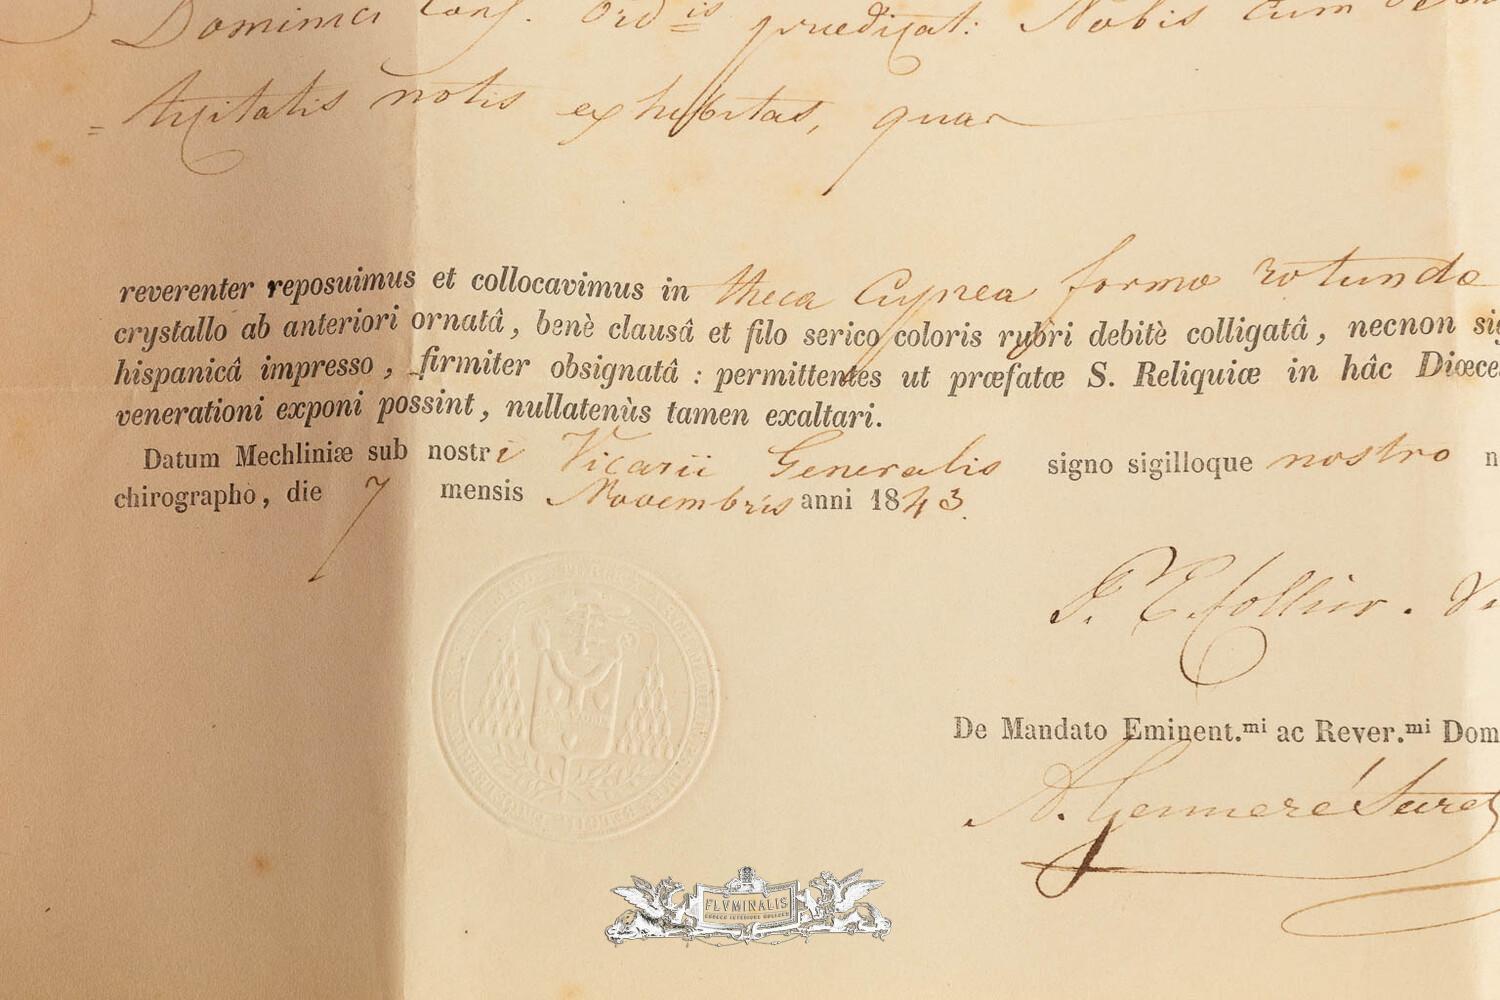 Dominici Conf. Ordis prædicat: Nobis cum
= ticitatis notis exhibitas, quas
reverenter reposuimus et collocavimus in theca Cuprea forma rotunda
crystallo ab anteriori ornatâ, benè clausâ et filo serico coloris rubri debitè colligatâ, necnon sig
hispanicâ impresso, firmiter obsignatâ : permittentes ut præfatæ S. Reliquiæ in hâc Diœces
venerationi exponi possint, nullatenùs tamen exaltari.
Datum Mechliniæ sub nostri Vicarii Generalis signo sigilloque nostro n
chirographo, die 7 mensis Novembris anni 1843.
De Mandato Eminent.mi ac Rever.mi Dom
FLVMINALIS